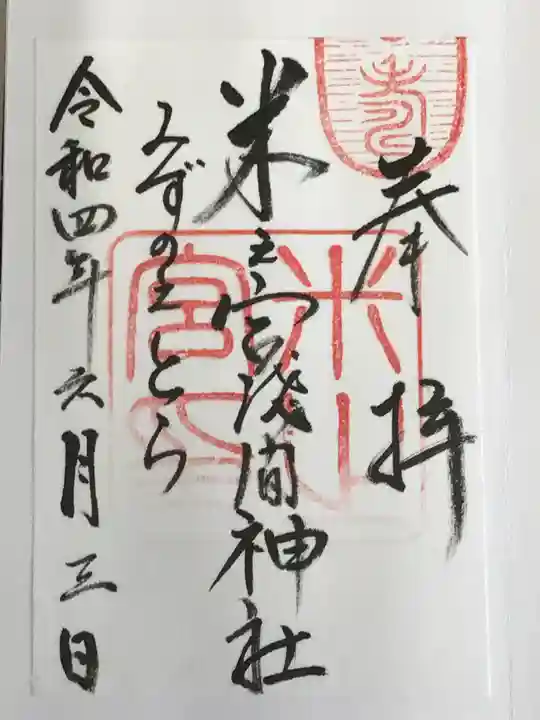 奉拝
米之宮浅間神社
みずのえとら
令和四年六月三日